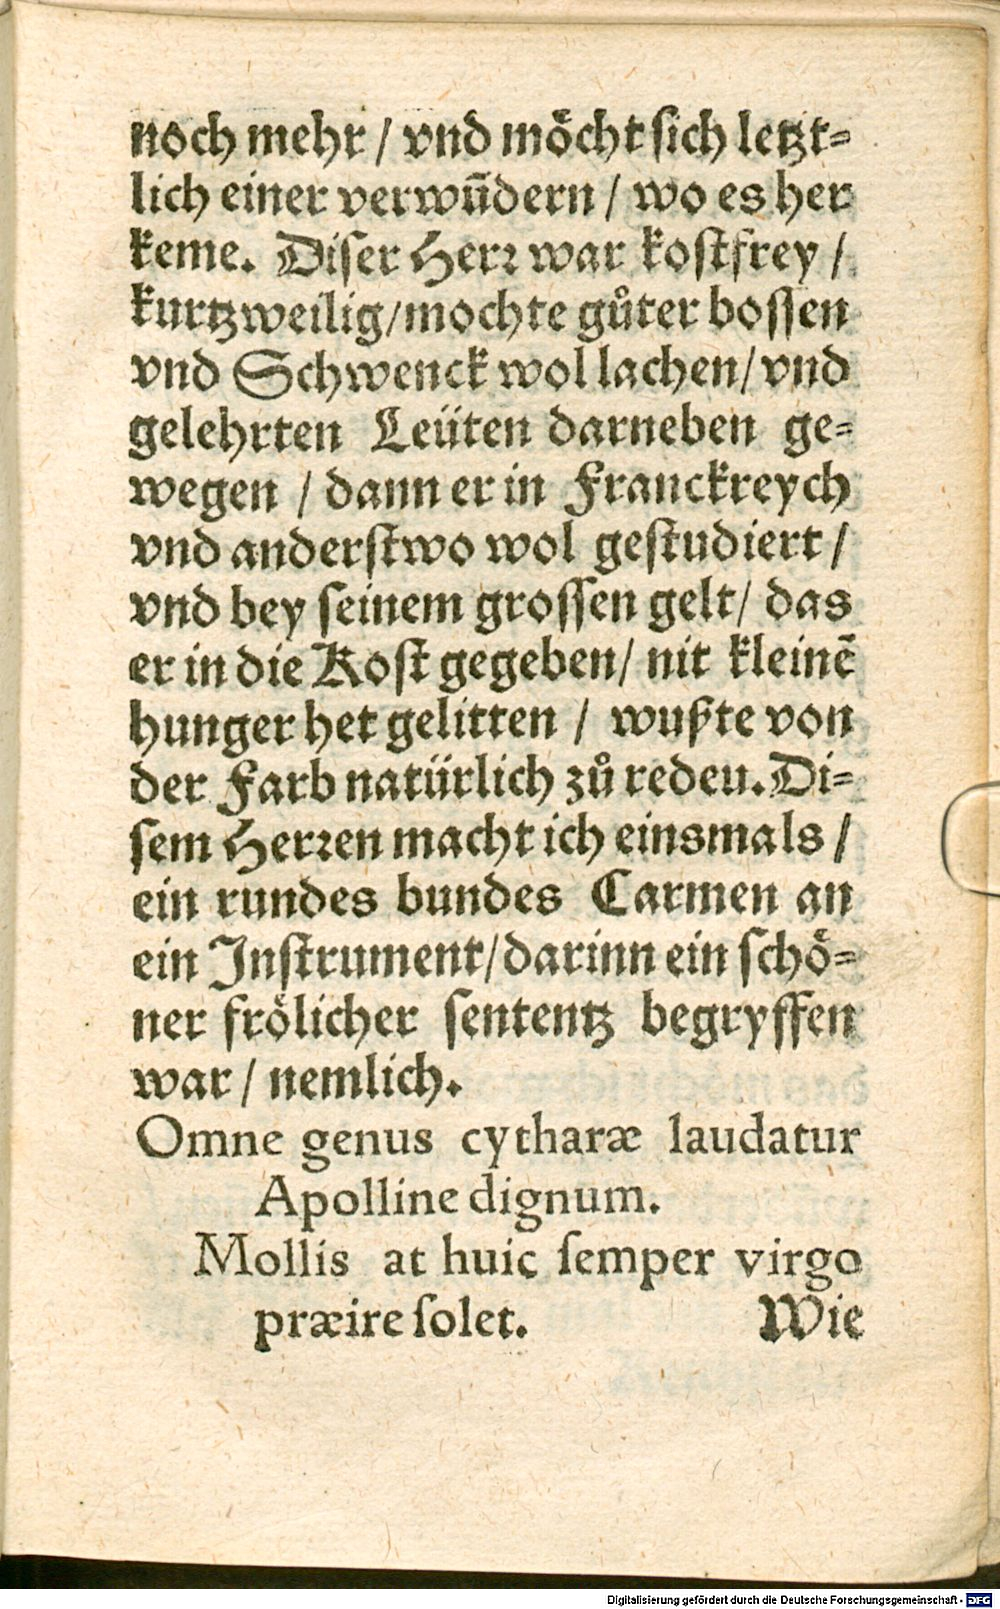 noch mehr / vnd möcht sich letzt⸗
lich einer verwūdern / wo es her
keme. Diser Herꝛ war kostfrey /
kurtzweilig/mochte gůter bossen
vnd Schwenck wol lachen/ vnd
gelehrten Leüten darneben ge⸗
wegen / dann er in Franckreych
vnd anderstwo wol gestudiert /
vnd bey seinem grossen gelt/ das
er in die Kost gegeben/ nit kleinē
hunger het gelitten / wußte von
der Farb natürlich zů reden. Di⸗
sem Herꝛen macht ich einsmals /
ein rundes bundes Carmen an
ein Instrument/darinn ein schö⸗
ner frölicher sententz begryffen
war / nemlich.
Omne genus cytharæ laudatur
Apolline dignum.
Mollis at huic ſemper virgo
præire ſolet. Wie
Digitalisierung gefördert durch die Deutsche Forschungsgemeinschaft - DFG